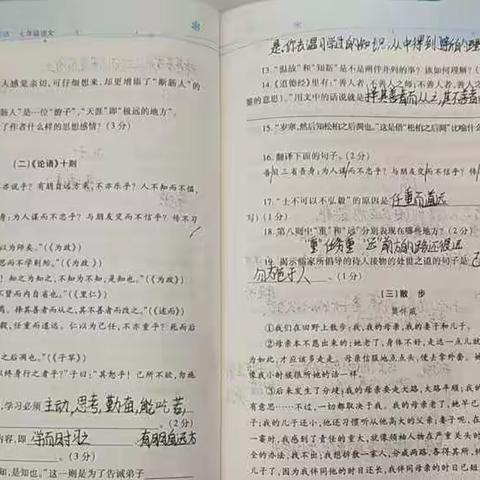 七年级语文
人感觉亲切,可仔细想来,却更增添了“断肠人”的
肠人”是一位“游子”,“天涯”即“极远的地方”。
了作者什么样的思想感情?(3分)
(二)《论语》十则
亦说乎?有朋自远方来,不亦乐乎?人不知而不愠,
身:为人谋而不忠乎?与朋友交而不信乎?传不习
以为师矣。”(《为政》)
思而不学则殆。”(《为政》)
!知之为知之,不知为不知,是知也。”(《为政》)
不贤而内自省也。”(《里仁》)
择其善者而从之,其不善者而改之。”(《述而》)
毅,任重而道远。仁以为己任,不亦重乎?死而后
之后凋也。”(《子罕》)
终身行之者乎?”子曰:“其恕乎!己所不欲,勿施
,学习必须主动,思考,勤奋,能吃苦,
(2分)
内容,即 学而时习之 有朋自远方
(3分)
知,是知也。”这一则是为了告诫弟子
是:你去温习学过的知识,从中得到
13.“温故”和“知新”是不是两件并列的事?该如何理解?(
14.《道德经》里有:“善人者,不善人之师;不善人者,善人之
鉴的意思)。”用文中的话说就是择其善者而从之,其不善者
15.“岁寒,然后知松柏之后凋也。”这是借“松柏之后凋”比喻什么
16.翻译下面的句子。(2分)
吾日三省吾身:为人谋而不忠乎?与朋友交而不信乎?传不
17.“士不可以不弘毅”的原因是任重而道远
写)(1分)
18.第八则中“重”和“远”分别表现在哪些地方?(2分)
“重”任务重 远前方的路还很远
19.揭示儒家所倡导的待人接物的处世之道的句子是 己
勿施于人。(1分)
(三)散步
莫怀戚
①我们在田野上散步:我,我的母亲,我的妻子和儿子。
②母亲本不愿出来的;她老了,身体不好,走远一点儿就
为如此,才应该多走走。母亲信服地点点头,便去拿外套。她
像我小时候很听她的话一样。
③后来发生了分歧;我的母亲要走大路,大路平顺;我的
有意思……不过,一切都取决于我。我的母亲老了,她早已
子;我的儿子还小,他还习惯听从他高大的父亲;妻子呢,在
一霎时,我感到了责任的重大,就像领袖人物在严重关头时
全的办法,找不出;我想拆散一家人,分成两路,各得其所,终
儿子了,因为我伴同他的时日还长,我伴同母亲的时日已短